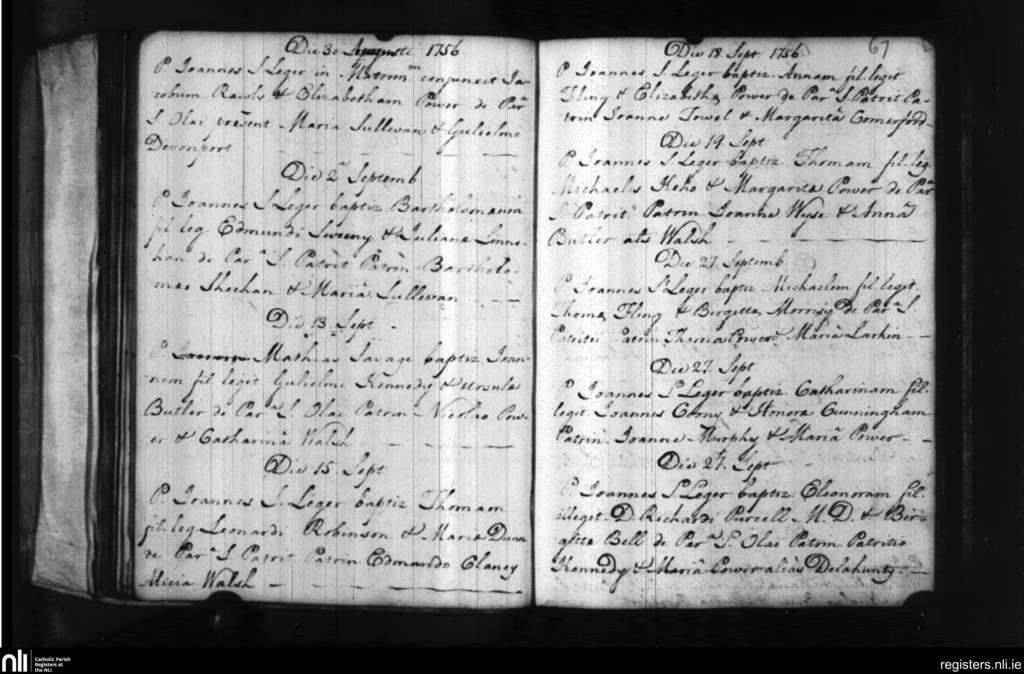 Die 30 Augusti 1756.
P. Joannes S. Leger in Matrim.m conjunxit Ja-
cobum Rawls & Elizabetham Power de Par.a
S Olai present Maria Sullevan & Gulielmo
Devonport
Die 2.a Septemb
P Joannes S Leger baptiz Bartholomaeum
fil leg. Edmundi Sweeny & Juliana Linne-
han de Par.a S. Patrit Patrin Bartholo-
meo Sheehan & Mariâ Sullevan
Die 13. Sept
P. Mathias Savage baptiz Joan-
nem fil legit Gulielmi Kennedy & Ursula
Butler de Par.a S. Olai Patrin Nicolao Pow-
er & Catharinâ Walsh
Die 15 Sept
P. Joannes S. Leger baptiz Thomam
fil. leg Leonardi Robinson & Maria Dunn
de Par.a S Patrit Patrin Edmundo Clancy
Walsh
67
Die 18 Sept. 1756
P Joannes S. Leger baptiz. Annam fil. legit
Fling & Elizabetha Power de Par.a S. Patrit Pa-
trin Joanne Towel & Margaritâ Comerford
Die 19. Sept
P Joannes S Leger baptiz. Thomam fil. leg.
Michaelis Keho & Margarita Power de Par.a
S. Patrit. Patrin Joanne Wyse & Annâ
Butler als Walsh
Die 27. Septemb
P Joannes S.t Leger baptiz Michaelem fil legit.
Thoma Fling & Birgitta Morrisy de Par.a S
Patritii Patrin Thoma Power & Mariâ Larkin
Die 27. Sept
P Joannes S.t Leger baptiz. Catharinam fil.
legit Joannes Corny & Honora Cunningham
Patrin. Joanne Murphy & Mariâ Power
Die 27. Sept
P. Joannes S.t Leger baptiz. Eleonoram fil.
illegit. D. Richardi Purcell M. D. & Bir-
gitta Bell de Par.a S. Olai Patrin Patritio
Kennedy & Mariâ Power alias Delahunty
nli
Catholic Parish
Registers at
the NLI
registers.nli.ie